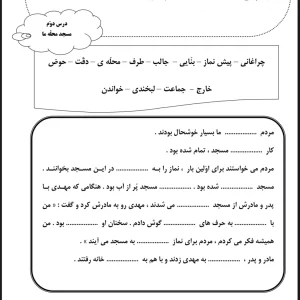 درس دوّم
مسجد محلّه ما
چراغانی – پیش نماز – بنّایی – جالب – طرف – محلّه ی – دقّت – حوض
خارج – جماعت – لبخندی – خواندن
مردم .............. ما بسیار خوشحال بودند .
کار .............. مسجد ، تمام شده بود .
مردم می خواستند برای اولین بار ، نماز را به .............. در این مسجد بخوانند .
مسجد .............. شده بود . .............. مسجد پُر از آب بود . هنگامی که مهدی با
پدر و مادرش از مسجد .............. می شدند ، مهدی رو به مادرش کرد و گفت : « من
با .............. به حرف های .............. گوش دادم . سخنان او .............. بود . من
همیشه فکر می کردم ، مردم برای نماز .............. به مسجد می آیند » .
مادر و پدر ، .............. به مهدی زدند و با هم به .............. خانه رفتند .